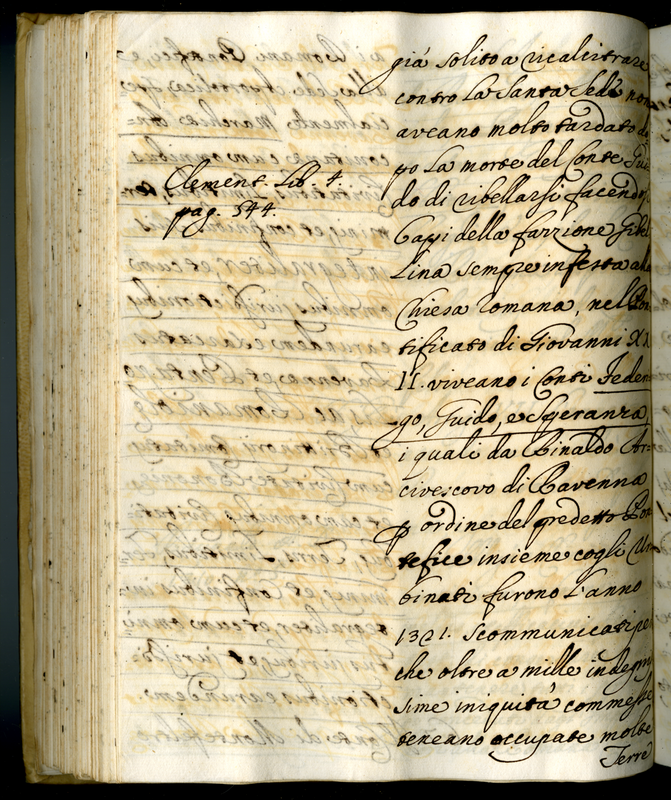 già solito a ricalcitrare
contro la Santa Sede non
aveano molto tardato do
po la morte del Conte Gui
do di ribellarsi facendosi
Capi della fazzione Gibel
lina sempre infesta alla
Chiesa Romana, nel Pon
tificato di Giovanni XX
II. viveano i Conti Federi
go, Guido, e Speranza,
i quali da Rinaldo Ar=
civescovo di Ravenna
p ordine del predetto Pon
tefice insieme cogli Ur
binati furono l'anno
1321. scommunicati per
che oltre a mille indegnis
sime iniquità commesse
teneano occupate molte
Terre
Clement. Lib. 4
pag. 544.